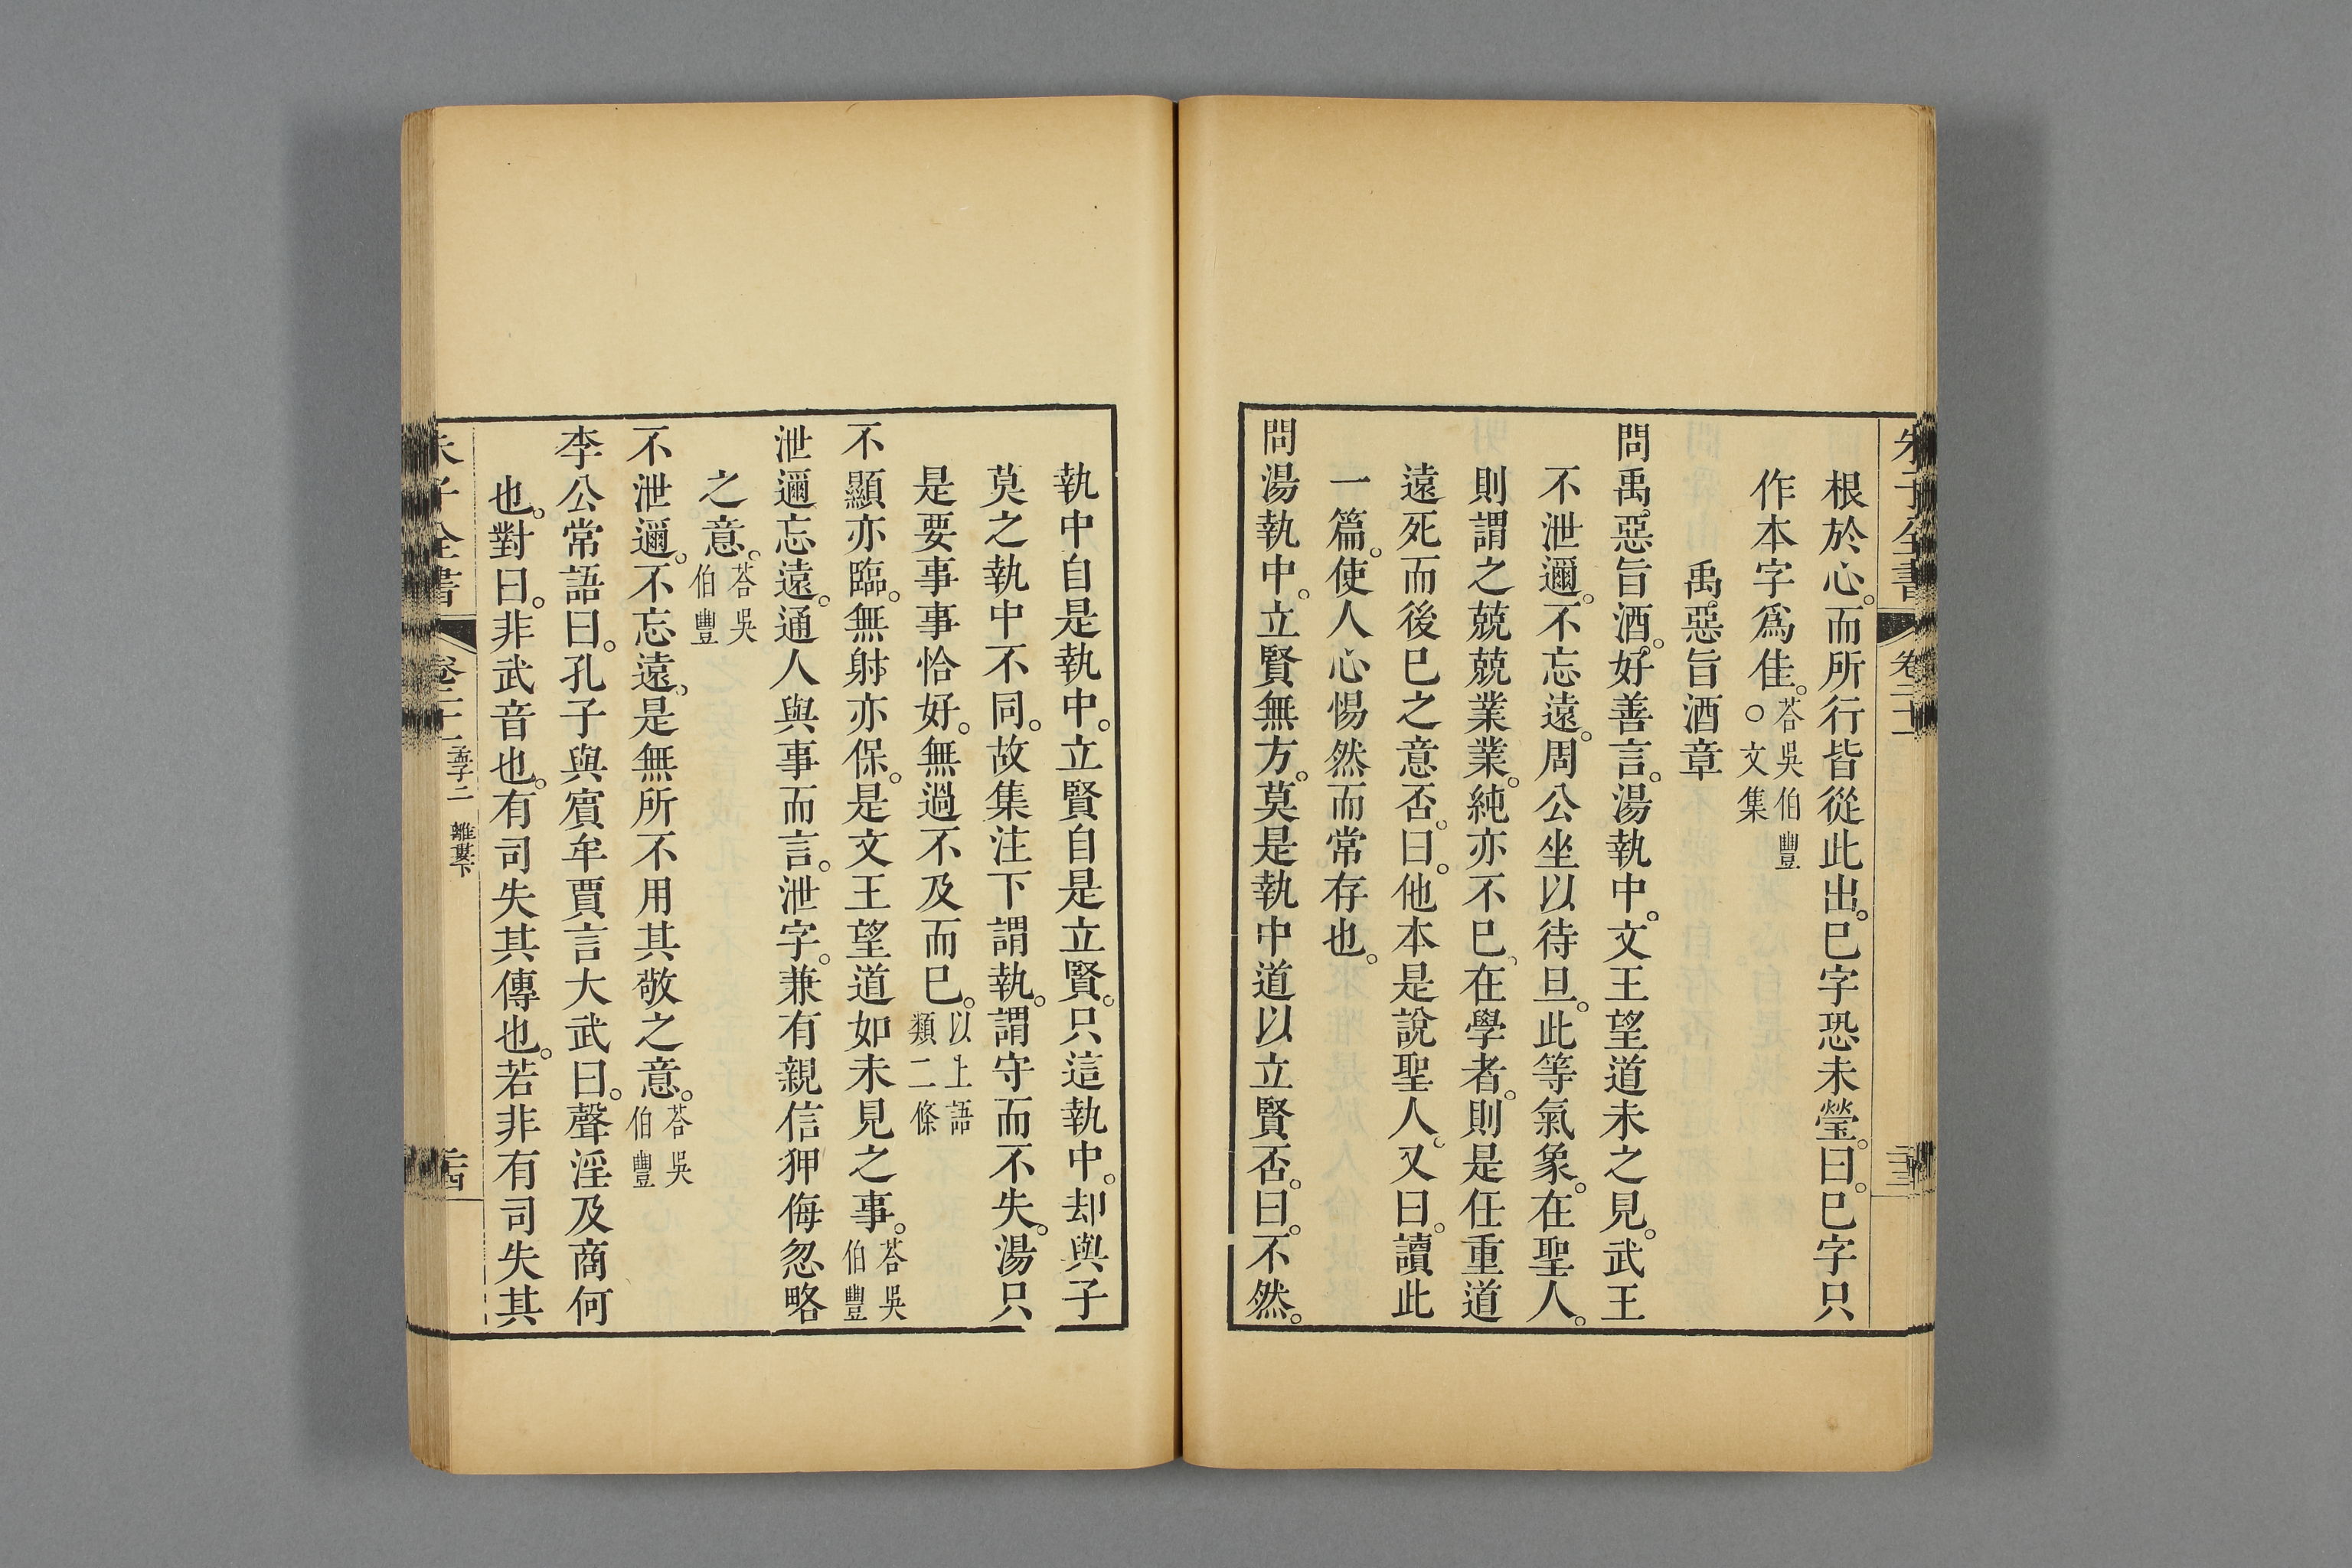 朱子全書 卷二十二 二十三
根於心。而所行皆從此出。巳字恐未瑩。曰。巳字只
作本字爲佳。○荅吳伯豐文集
禹惡旨酒章
問禹。惡旨酒。好善言。湯執中。文王望道未之見。武王
不泄邇。不忘遠。周公坐以待旦。此等氣象。在聖人。
則謂之兢兢業業。純亦不巳。在學者。則是任重道
遠死而後巳之意否。曰。他本是說聖人。又曰。讀此
一篇。使人心惕然而常存也。
問湯執中。立賢無方。莫是執中道以立賢否。曰。不然。
執中自是執中。立賢自是立賢。只這執中。却與子
莫之執中不同。故集注下謂執。謂守而不失。湯只
是要事事恰好。無過不及而巳。以上語類二條
不顯亦臨。無射亦保。是文王望道如未見之事。荅吳伯豐
泄邇忘遠。通人與事而言。泄字。兼有親信狎侮忽略
之意。荅吳伯豐
不泄邇。不忘遠。是無所不用其敬之意。荅吳伯豐
李公常語曰。孔子與賓牟賈言大武曰。聲淫及商何
也。對曰。非武音也。有司失其傳也。若非有司失其
朱子全書 卷二十二 孟子二 離婁下 二十四